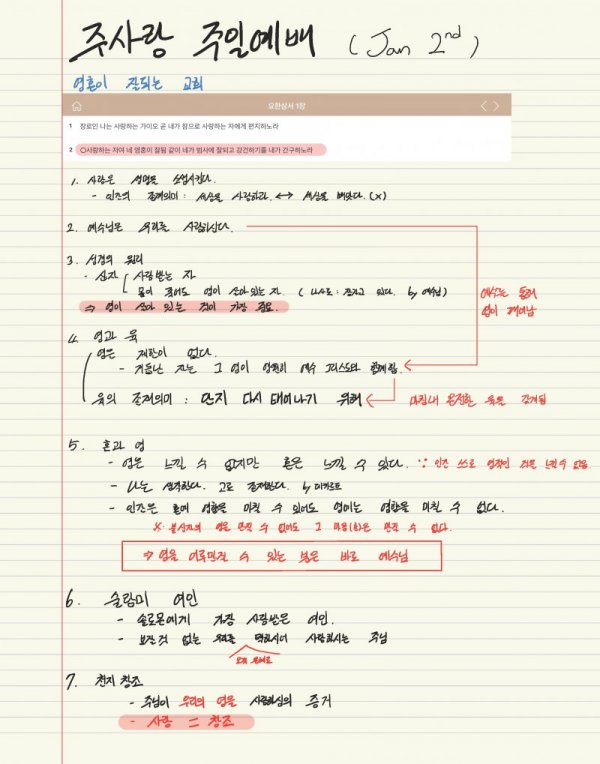 주사랑 주일예배 (Jan 2nd)
영혼이 잘되는 교회
요한삼서 1장
1 장로인 나는 사랑하는 가이오 곧 내가 참으로 사랑하는 자에게 편지하노라
2 ○사랑하는 자여 네 영혼이 잘됨 같이 네가 범사에 잘되고 강건하기를 내가 간구하노라
1. 사랑은 생명을 소생시킨다.
- 인즈의 존재의미 : 세상을 사랑하라. ↔ 세상을 배웠다. (x)
2. 예수님은 우리를 사랑하신다.
3. 성경의 원리
- 산자 사랑받는 자
몸이 죽어도 영이 살아 있는 자. ( 나사로 : 존자고 있다. by 예수님 )
⇒ 영이 살아 있는 것이 가장 중요.
예수님을 통해
영이 깨어남
4. 영과 육
영은 제한이 없다.
- 거듭난 자는 그 영이 영원히 예수 그리스도와 함께함.
육의 존재의미 : 단지 다시 태어나기 위해
마침내 온전한 육을 갖게됨
5. 혼과 영
- 영은 느낄 수 없지만 혼은 느낄 수 있다. ∵ 인즈 쓰로 영적인 것은 느낄 수 없음
- 나는 생각한다. 고로 존재한다. by 데카르트
- 인즈은 혼에 영향을 미칠 수 있어도 영에는 영향을 미칠 수 없다.
X: 불신자의 영을 만질 수 없어도 그 마음(혼)은 만질 수 있다.
⇒ 영을 어루만질 수 있는 분은 바로 예수님
6. 술람미 여인
- 솔로몬에게 가장 사랑받은 여인.
- 보잘것 없는 우리를 택하시어 사랑하시는 주님
오직 은혜로
7. 천지 창조
- 주님이 우리의 영을 사랑하심의 증거
- 사랑 = 창조